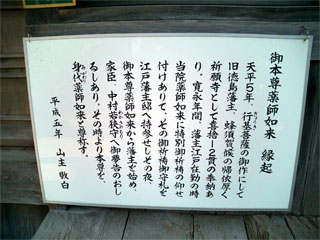 御本尊薬師如来 縁起
天平5年、行基菩薩の御作にして
旧徳島藩主、蜂須賀候の帰依厚く
祈願寺として喜捨12貫の奉納あ
り。寛永年間、藩主江戸在勤の時
当院薬師如来に特別御祈禱の仰せ
付けありて、その御祈禱御守札を
江戸藩主邸へ持参せしその夜、
御本尊薬師如来から藩主を始め、
家臣、中村若狭守へ御夢告のおし
るしあり。その時より本尊を、
身代薬師如来と尊称す。
平成五年 山主 敬白